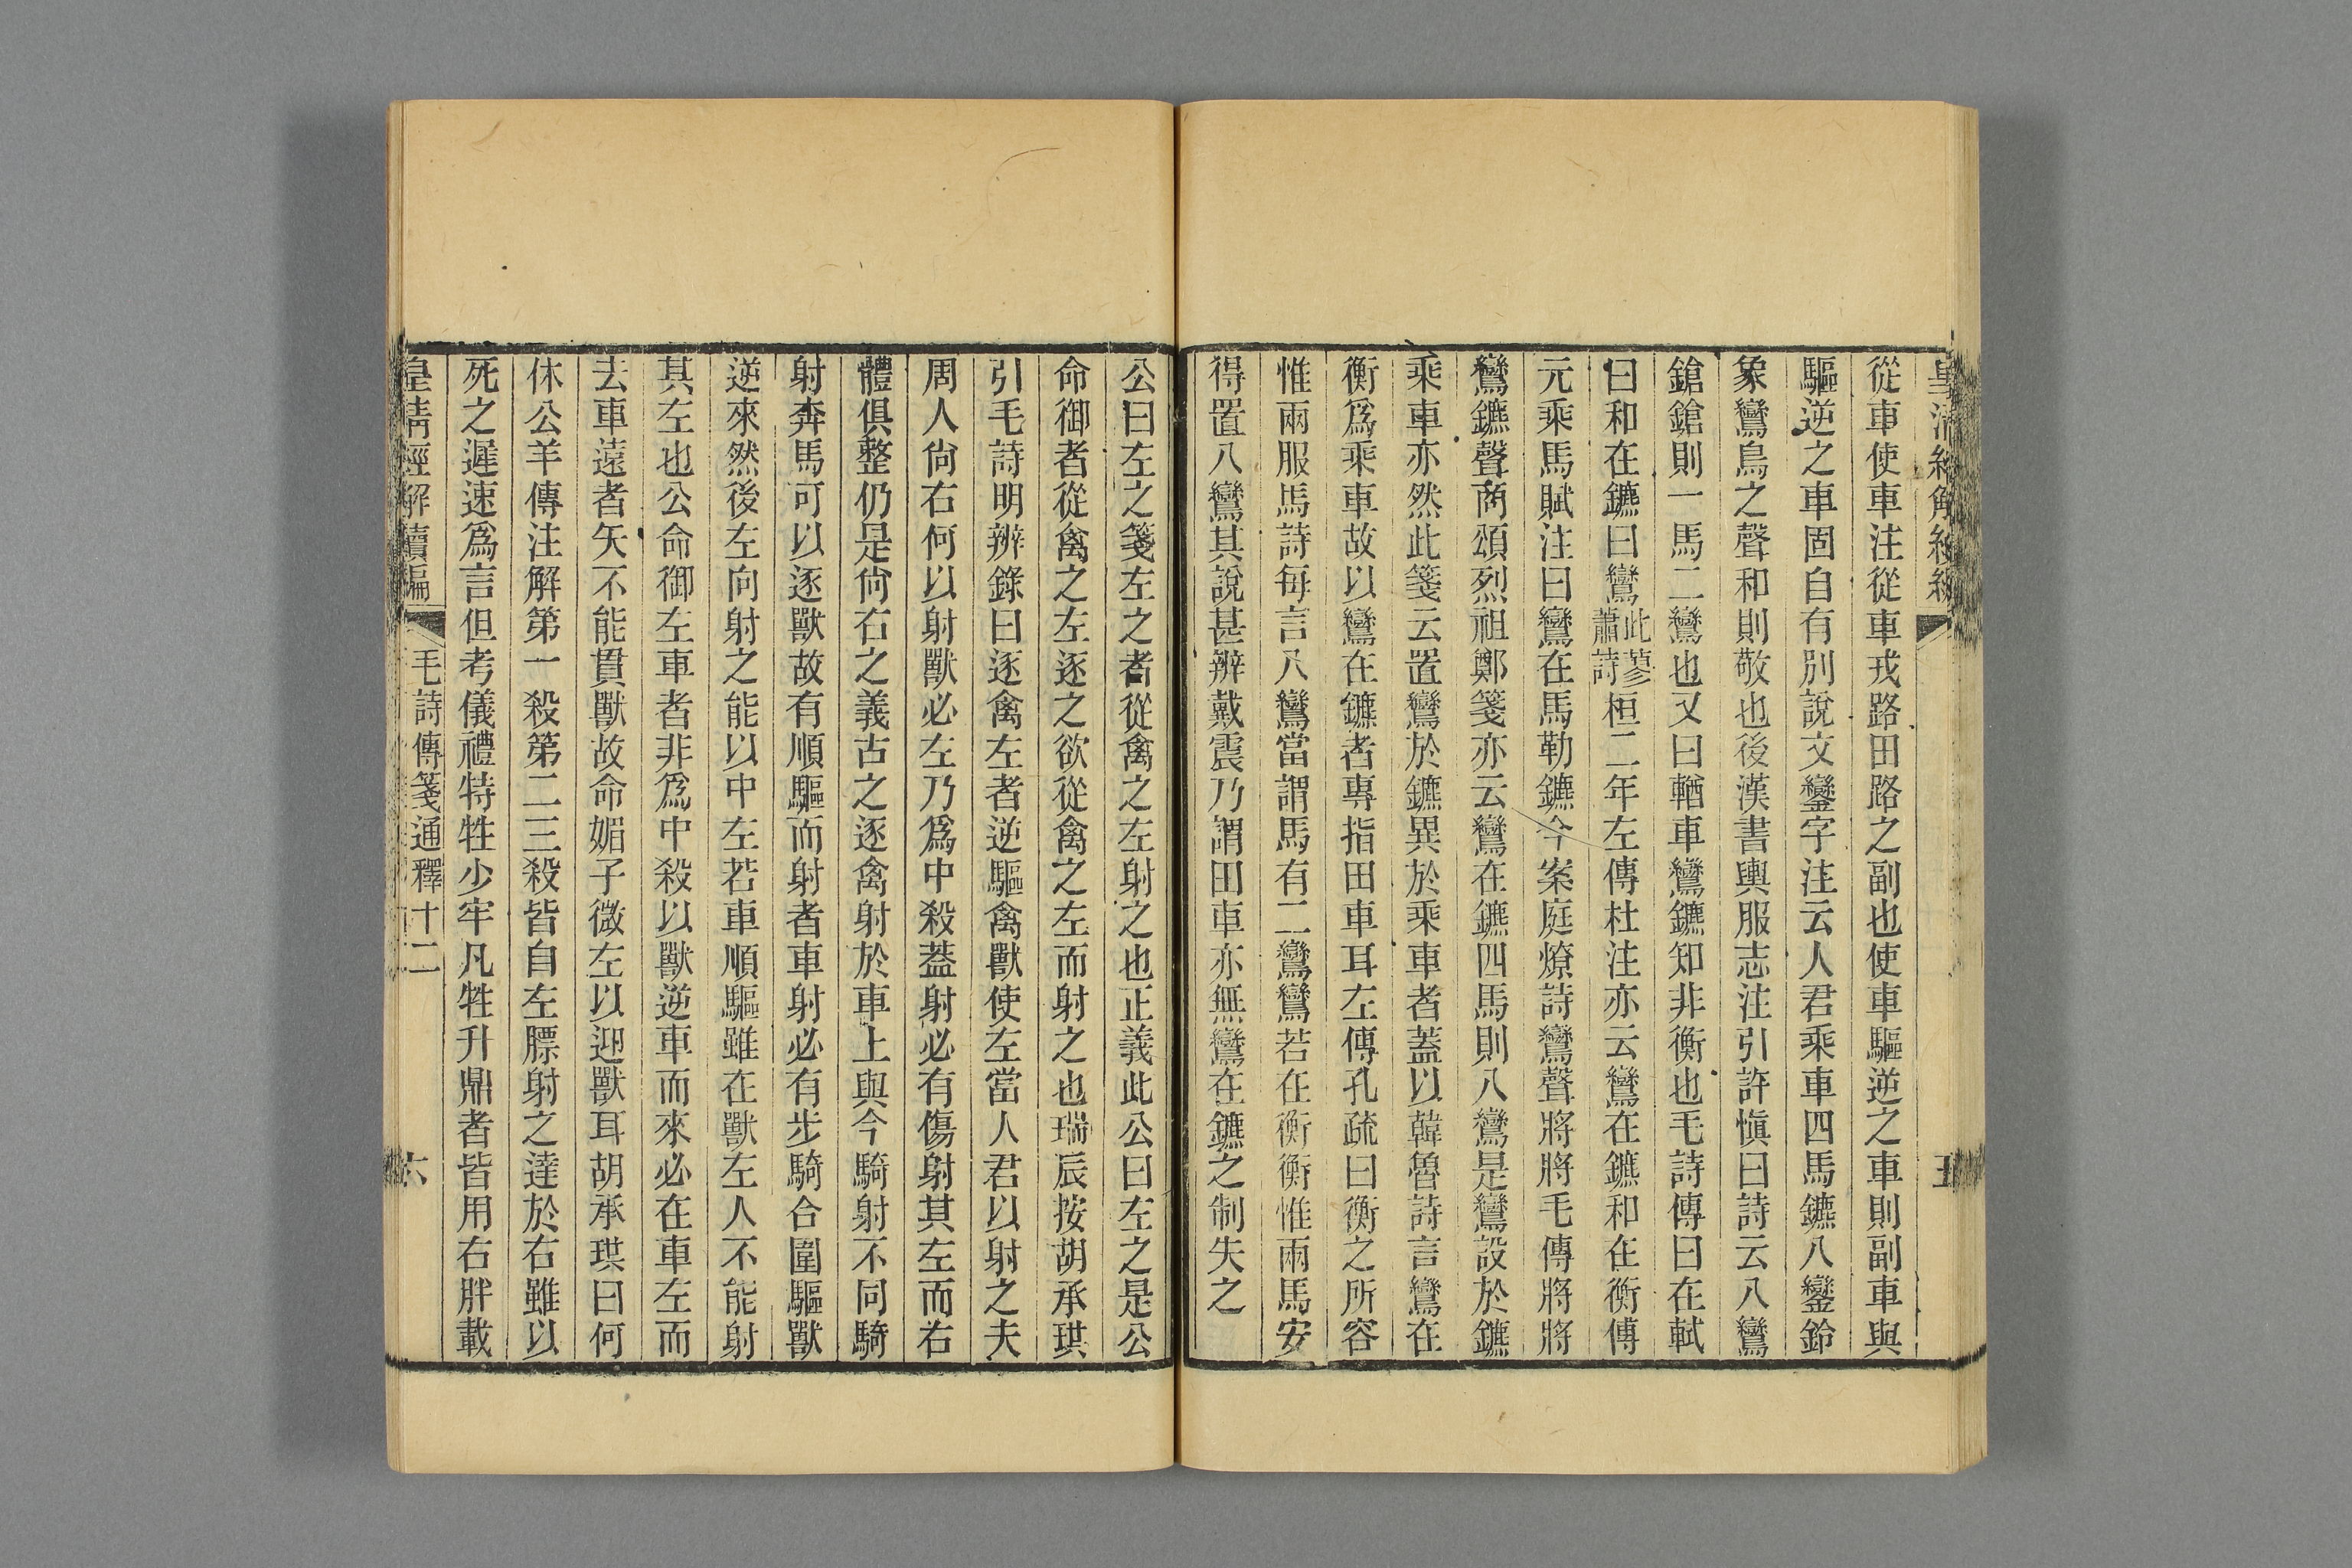 皇清經解續編
五
從車使車注從車戎路田路之副也使車驅逆之車則副車與
驅逆之車固自有別說文鑾字注云人君乘車四馬鑣八鑾鈴
象鸞鳥之聲和則敬也後漢書輿服志注引許愼曰詩云八鸞
鎗鎗則一馬二鸞也又曰輶車鸞鑣知非衡也毛詩傳曰在軾
曰和在鑣曰鸞此蓼蕭詩桓二年左傳杜注亦云鸞在鑣和在衡傅
元乘馬賦注曰鸞在馬勒鑣今案庭燎詩鸞聲將將毛傳將將
鸞鑣聲商頌烈祖鄭箋亦云鸞在鑣四馬則八鸞是鸞設於鑣
乘車亦然此箋云置鸞於鑣異於乘車者蓋以韓魯詩言鸞在
衡爲乘車故以鸞在鑣者專指田車耳左傳孔疏曰衡之所容
惟兩服馬詩每言八鸞當謂馬有二鸞鸞若在衡衡惟兩馬安
得置八鸞其說甚辨戴震乃謂田車亦無鸞在鑣之制失之
公曰左之箋左之者從禽之左射之也正義此公曰左之是公
命御者從禽之左逐之欲從禽之左而射之也瑞辰按胡承珙
引毛詩明辨錄曰逐禽左者逆驅禽獸使左當人君以射之夫
周人尙右何以射獸必左乃爲中殺葢射必有傷射其左而右
體俱整仍是尙右之義古之逐禽射於車上與今騎射不同騎
射奔馬可以逐獸故有順驅而射者車射必有步騎合圍驅獸
逆來然後左向射之能以中左若車順驅雖在獸左人不能射
其左也公命御左車者非爲中殺以獸逆車而來必在車左而
去車遠者矢不能貫獸故命媚子微左以迎獸耳胡承珙曰何
休公羊傳注解第一殺第二三殺皆自左膘射之達於右雖以
死之遲速爲言但考儀禮特牲少牢凡牲升鼎者皆用右胖載
皇清經解續編
毛詩傳箋通釋十二
六